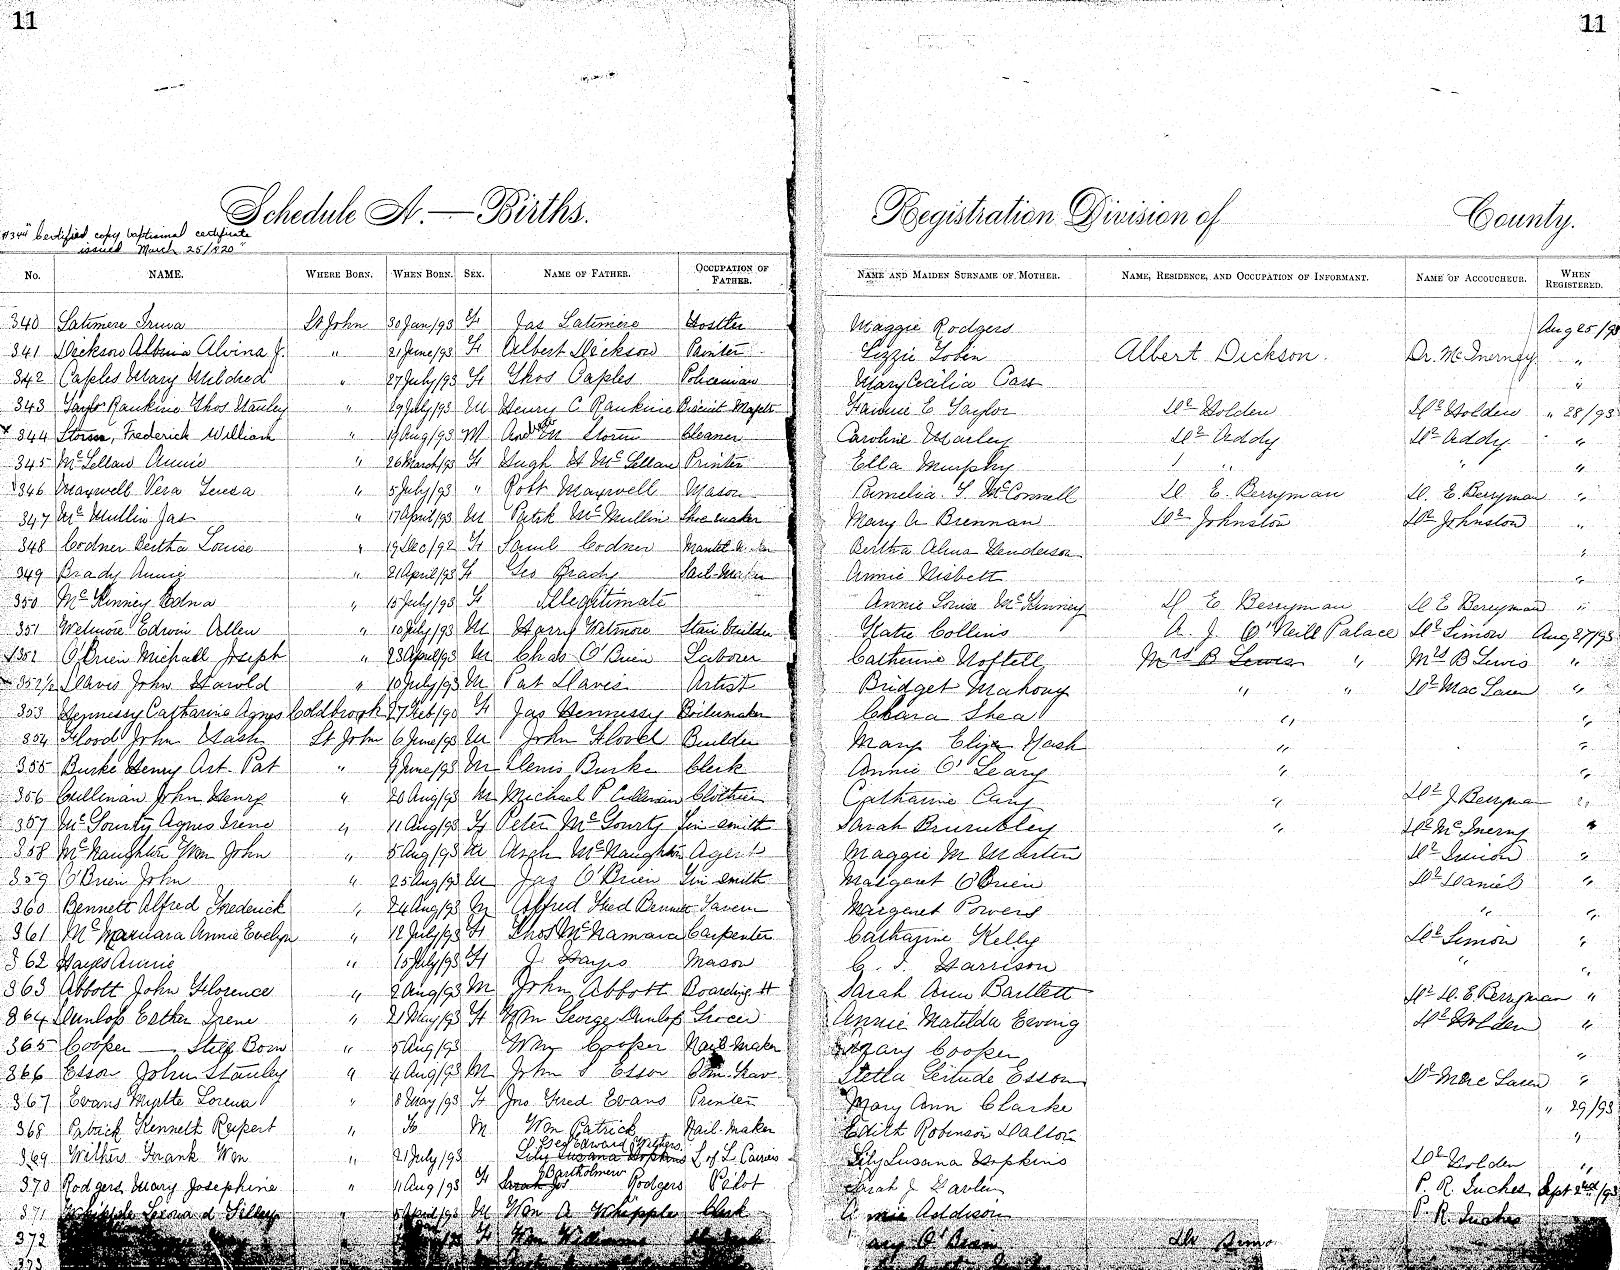 11
11
Schedule A.—Births.
Registration Division of
County.
#344 "Certified copy baptismal certificate
issued March 25/1920"
No. NAME. WHERE BORN. WHEN BORN. SEX. NAME OF FATHER. OCCUPATION OF FATHER. NAME AND MAIDEN SURNAME OF MOTHER. NAME, RESIDENCE, AND OCCUPATION OF INFORMANT. NAME OF ACCOUCHEUR. WHEN REGISTERED.
340 Latimere Irma St John 30 Jan/93 F Jas Latimere Hostler Maggie Rodgers Aug 25/93
341 Dickson Albina Alvina J. " 21 June/93 F Albert Dickson Painter Lizzie Tobin Albert Dickson. Dr. McInerney "
342 Caples Mary Mildred " 27 July/93 F Thos Caples Policeman Mary Cecilia "
343 Taylor Rankine Thos Stanley " 29 July/93 M Henry C Rankine Biscuit Fannie E Taylor Dr Holden Dr Holden " 28/93
x 344 Storm, Frederick William " 19 Aug/93 M Andrew Storm Cleaner Caroline Marley Dr Addy Dr Addy "
345 McLellan Annie " 26 March/93 F Hugh H McLellan Printer Ella Murphy " " "
346 Maxwell Vera Teresa " 5 July/93 " Robt Maxwell Mason Pamelia S. McConnell D. E. Berryman D. E Berryman "
347 McMullin Jas " 17 April/93 M Patrk McMullin Shoemaker Mary A Brennan Dr Johnston Dr Johnston "
348 Codner Bertha Louise " 19 Dec/92 F Saml Codner Bertha Alma Henderson "
349 Brady Annie " 21 April/93 F Geo Brady Sail-Maker Annie Nisbett "
350 McKinney Edna " 15 July/93 F Illegitimate Annie Louise McKinney D E Berryman D E Berryman "
351 Wetmore Edwin Allen " 10 July/93 M Harry Wetmore Stair builder Katie Collins A. J. O'Neill Palace Dr Simon Aug 27/93
352 O'Brien Michael Joseph " 23 April/93 M Chas O'Brien Laborer Catherine Noftell Mrs B Lewis " Mrs B Lewis "
352 1/2 Davis John Harold " 10 July/93 M Pat Davis Artist Bridget Mahony " " Dr MacLaren "
353 Hennessy Catharine Agnes Coldbrook 27 Feb/90 F Jas Hennessy Boilermaker Chara Shea " "
354 Flood John Nash St John 6 June/93 M John Flood Builder Mary Eliza Nash " "
355 Burke Henry Art. Pat " 9 June/93 M Denis Burke Clerk Annie O'Leary " "
356 Cullinan John Henry " 20 Aug/93 M Michael P Cullinan Clothier Catharine " Dr J Berryman "
357 McGourty Agnes Irene " 11 Aug/93 F Peter McGourty Tin-smith Sarah Brumbley " Dr McInerny "
358 McNaughton Wm John " 5 Aug/93 M Arch McNaughton Agent Maggie M Marten Dr "
359 O'Brien John " 25 Aug/93 M Jas O'Brien Tin-smith Margaret O'Brien Dr Daniel "
360 Bennett Alfred Frederick " 24 Aug/93 M Alfred Fred Bennett Tavern Margaret Powers " "
361 McNamara Annie Evelyn " 12 July/93 F Thos McNamara Carpenter Catharine Kelly Dr Simon "
362 Hayes Annie " 15 July/93 F J. Hayes Mason C. I. Harrison " "
363 Abbott John Florence " 2 Aug/93 M John Abbott Boarding H Sarah Ann Bartlett Dr D. E. Berryman "
364 Dunlop Esther Irene " 21 May/93 F Wm George Dunlop Grocer Annie Matilda Ewing Dr Holden "
365 Cooper — Still Born " 5 Aug/93 Wm Cooper Nail-Maker Mary Cooper "
366 Esson John Stanley " 4 Aug/93 M John S Esson Com. Trav. Stella Gertude Esson Dr MacLaren "
367 Evans Myrtle Lorena " 8 May/93 F Jno Fred Evans Printer Mary Ann Clarke " 29/93
368 Patrick Kenneth Rupert " M Wm Patrick Nail-maker Edith Robinson Dalton "
369 Withers Frank Wm " 21 July/93 Geo Edward Withers Lily Susana Hopkins L of L Carriers Lily Susana Hopkins Dr Holden "
370 Rodgers Mary Josephine " 11 Aug/93 F Sarah Jos Bartholomew Rodgers Pilot Sarah J P. R. Inches Sept 2nd/93
371 Whipple " M Wm A Whipple Clerk Addison P. R. Inches
372 F Wm Williams O'Brien Dr
373